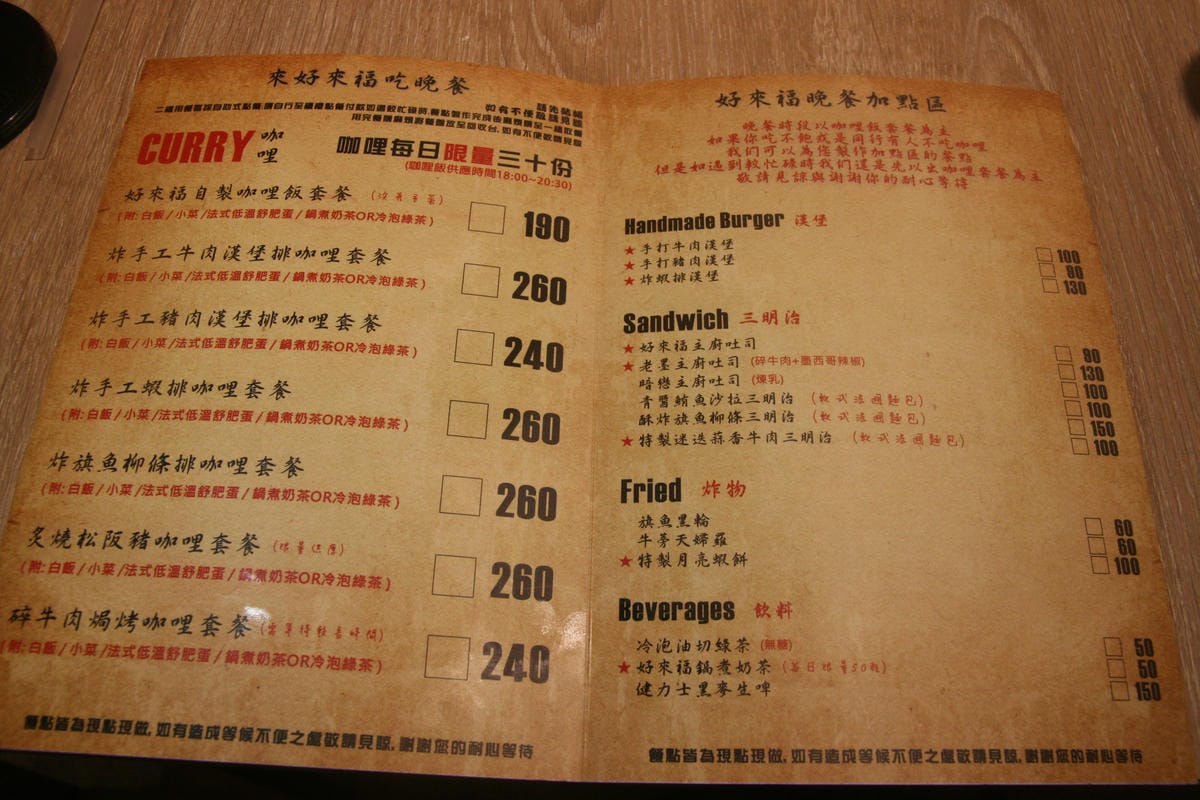 來好來福吃晚餐
如有不便
敬請見諒
CURRY 咖哩
咖哩每日限量三十份
(咖哩飯供應時間18:00~20:30)
好來福自製咖哩飯套餐 190
(附: 白飯 / 小菜 /法式低溫舒肥蛋 / 鍋煮奶茶OR冷泡綠茶 )
炸手工牛肉漢堡排咖哩套餐 260
(附: 白飯 / 小菜 /法式低溫舒肥蛋 / 鍋煮奶茶OR冷泡綠茶 )
炸手工豬肉漢堡排咖哩套餐 240
(附: 白飯 / 小菜 /法式低溫舒肥蛋 / 鍋煮奶茶OR冷泡綠茶 )
炸手工蝦排咖哩套餐 260
(附: 白飯 / 小菜 /法式低溫舒肥蛋 / 鍋煮奶茶OR冷泡綠茶 )
炸旗魚柳條排咖哩套餐 260
(附: 白飯 / 小菜 /法式低溫舒肥蛋 / 鍋煮奶茶OR冷泡綠茶 )
炙燒松阪豬咖哩套餐 (限量供應) 260
(附: 白飯 / 小菜 /法式低溫舒肥蛋 / 鍋煮奶茶OR冷泡綠茶 )
碎牛肉焗烤咖哩套餐 (需等待較長時間) 240
(附: 白飯 / 小菜 /法式低溫舒肥蛋 / 鍋煮奶茶OR冷泡綠茶 )
餐點皆為現點現做, 如有造成等候不便之處敬請見諒, 謝謝您的耐心等待
好來福晚餐加點區
晚餐時段以咖哩飯套餐為主
如果你吃不飽或是同行有人不吃咖哩
我們可以為您製作加點區的餐點
但是如遇到較忙碌時我們還是先以出咖哩套餐為主
敬請見諒與謝謝你的耐心等待
Handmade Burger 漢堡
★手打牛肉漢堡 100
★手打豬肉漢堡 90
★炸蝦排漢堡 130
Sandwich 三明治
★好來福主廚吐司 90
★老墨主廚吐司 (碎牛肉+墨西哥辣椒) 130
暗戀主廚吐司 (煉乳) 100
青醬鮪魚沙拉三明治 (軟式法國麵包) 100
酥炸旗魚柳條三明治 (軟式法國麵包) 150
★特製迷迭蒜香牛肉三明治 (軟式法國麵包) 100
Fried 炸物
旗魚黑輪 60
牛蒡天婦羅 60
★特製月亮蝦餅 100
Beverages 飲料
冷泡油切綠茶 (無糖) 50
★好來福鍋煮奶茶 (每日限量50瓶) 50
健力士黑麥生啤 150
餐點皆為現點現做, 如有造成等候不便之處敬請見諒, 謝謝您的耐心等待